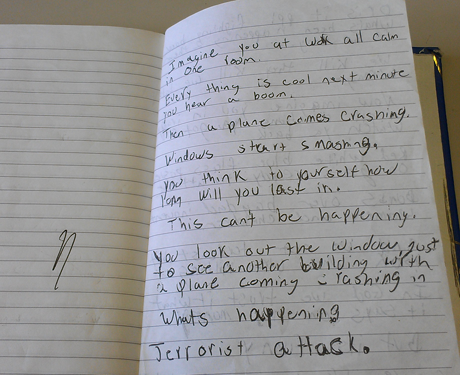 n
Imagine you at work all calm
in one room.
Every thing is cool next minute
you hear a boom.
Then a plane comes crashing.
Windows start smashing.
you think to yourself how
long will you last in.
This can't be happening.
You look out the window just
to see another building with
a plane coming crashing in
whats happening
Terrorist attack.